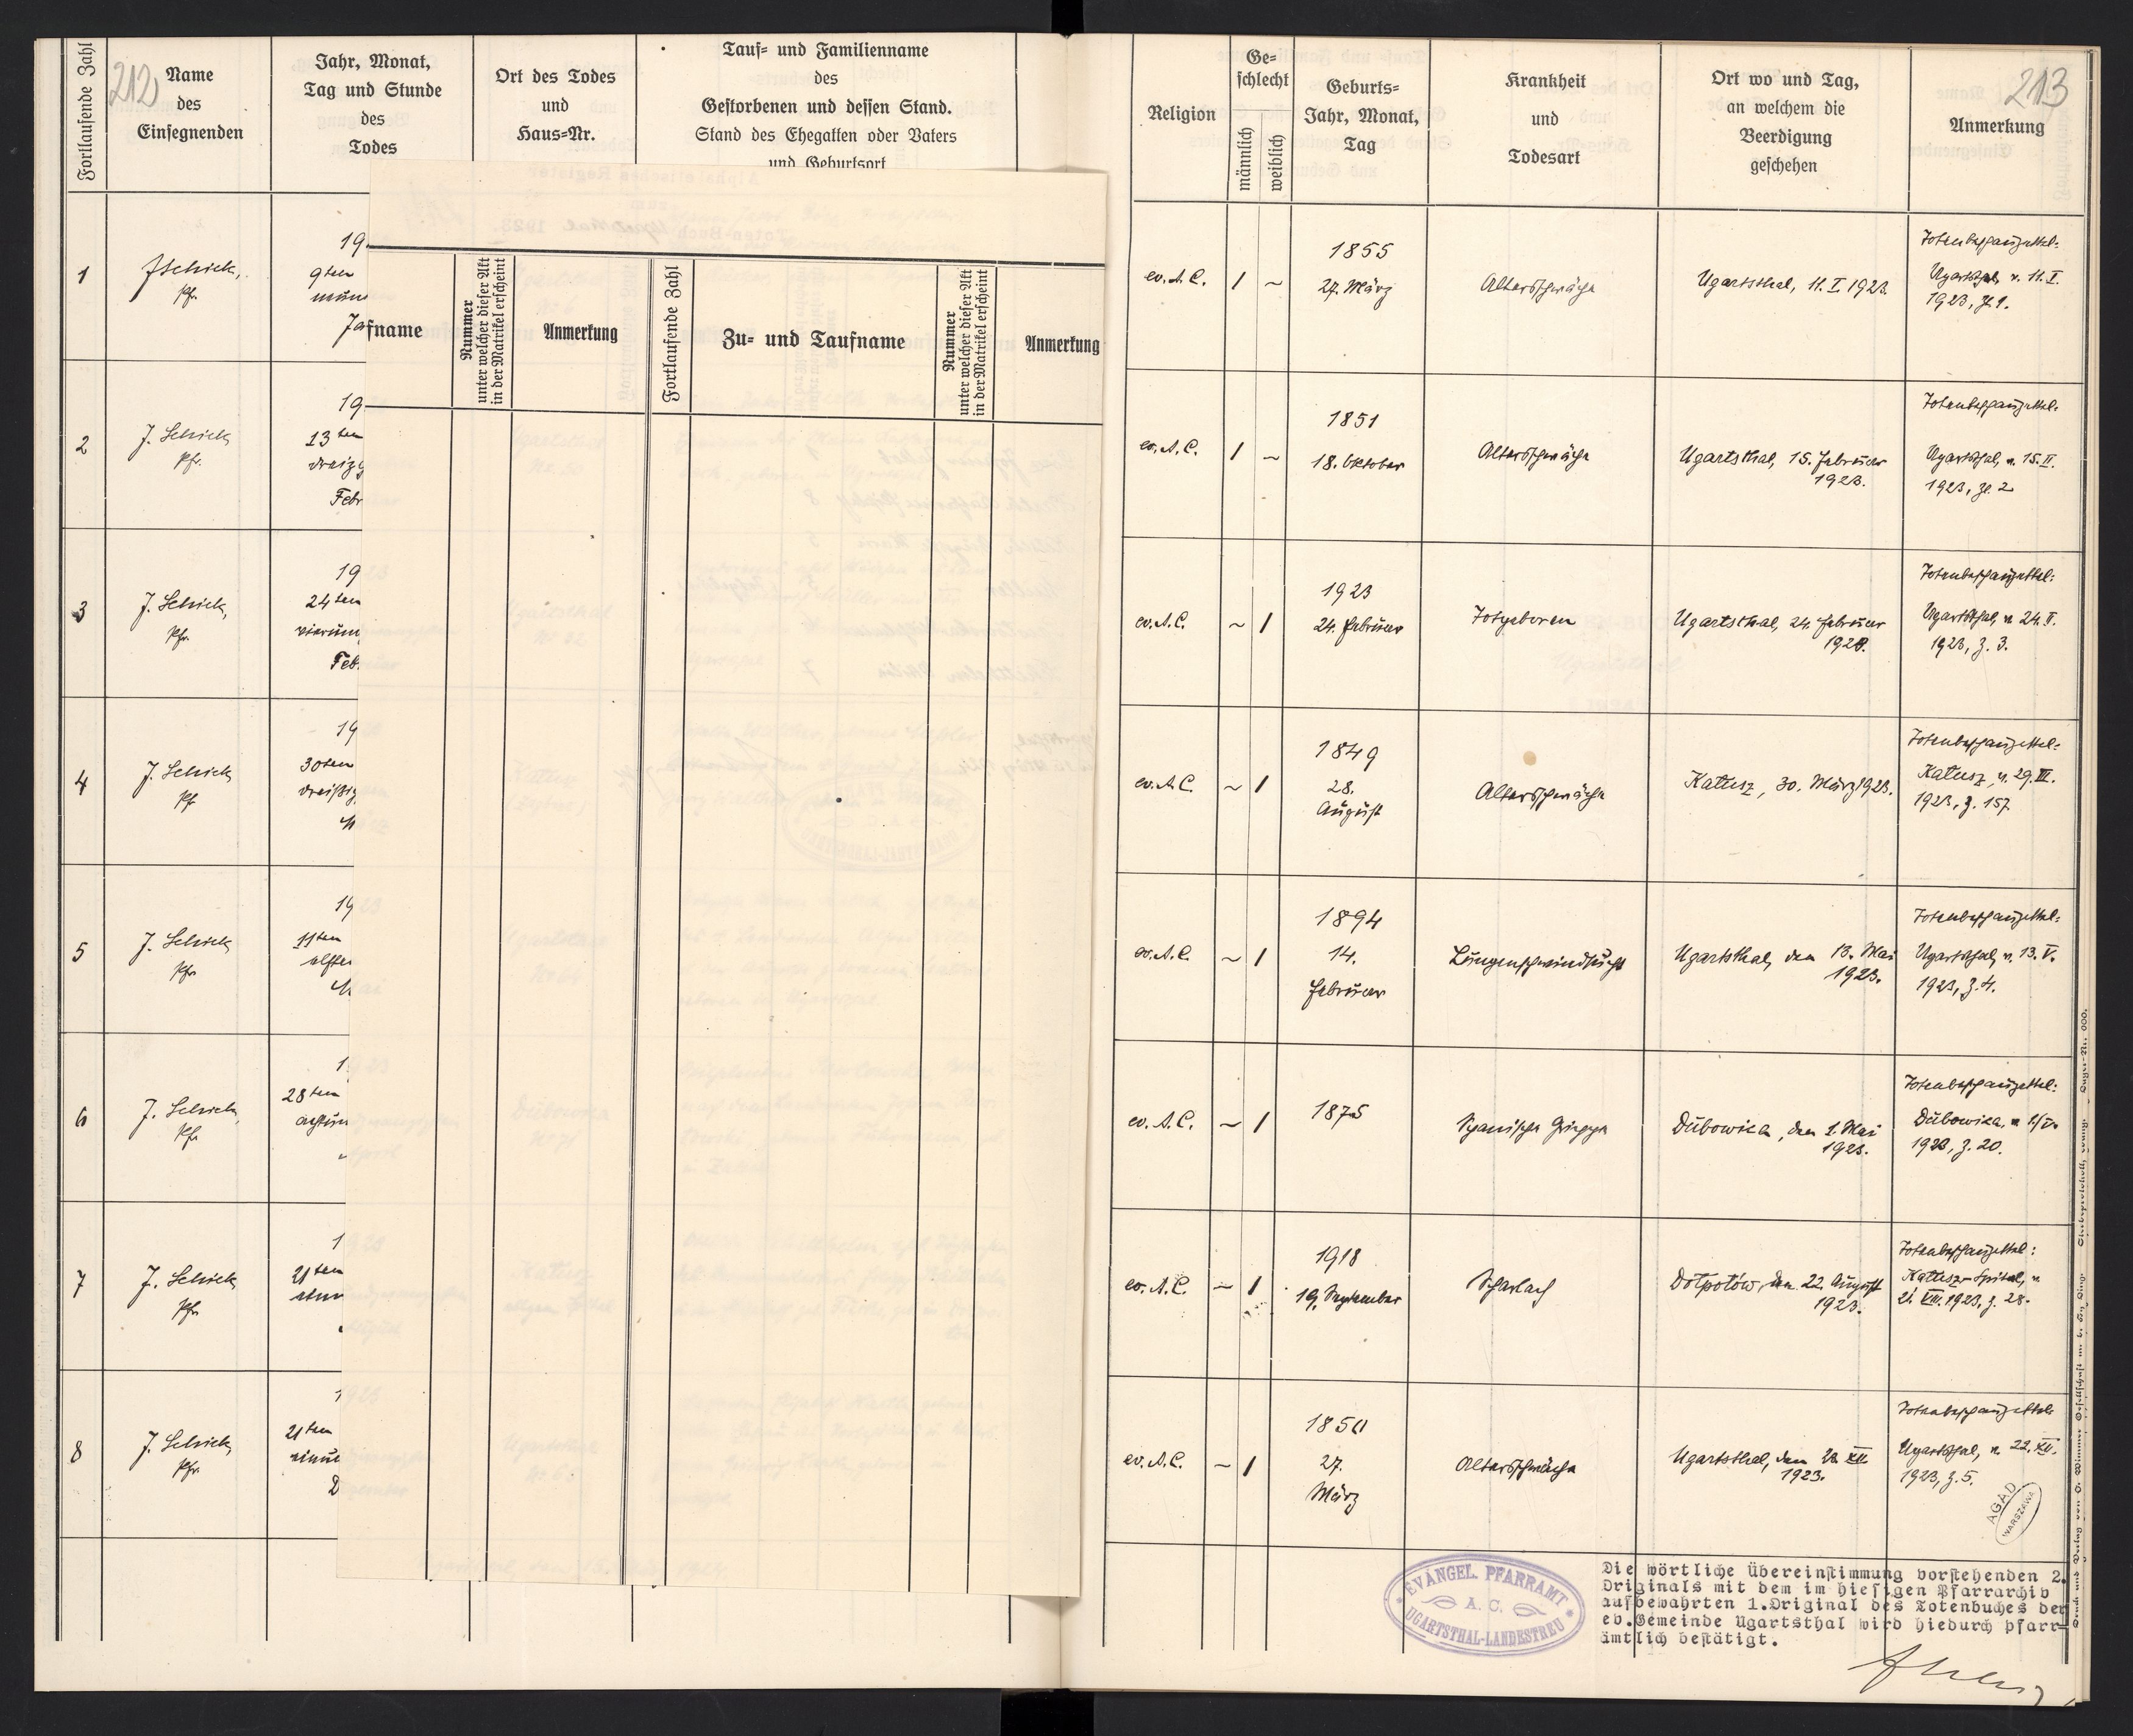 212
Fortlaufende Zahl
Name
des
Einsegnenden
Jahr, Monat,
Tag und Stunde
des
Todes
Ort des Todes
und
Haus=Nr.
Tauf= und Familienname
des
Gestorbenen und dessen Stand.
Stand des Ehegatten oder Vaters
und Geburtsort
1
JSchick,
Pfr.
19
9ten
2
J. Schick,
Pfr.
19
13ten
dreizg
Febr
3
J. Schick,
Pfr.
19
24ten
vierun
Feb.
4
J. Schick
Pf
19
30ten
dreißig
M
5
J. Schick
Pfr.
19
11ten
elfter
M
6
J. Schick,
Pf.
1
28ten
achtun
7
J. Schick
Pfr.
1
21ten
8
J. Schick,
Pfr.
1
21ten
D
fname
Nummer
unter welcher dieser Akt
in der Matrikel erscheint
Anmerkung
Fortlaufende Zahl
Zu= und Taufname
Nummer
unter welcher dieser Akt
in der Matrikel erscheint
Anmerkung
213
Religion
Ge=
schlecht
männlich
weiblich
Geburts=
Jahr, Monat,
Tag
Krankheit
und
Todesart
Ort wo und Tag,
an welchem die
Beerdigung
geschehen
Anmerkung
ev. A. C.
1
~
1855
27. März
Altersschwäche
Ugartsthal, 11. I. 1923.
Totenbeschauzettel:
Ugartsthal, v. 11. I.
1923, Zl. 1.
ev. A. C.
1
~
1851
18. Oktober
Altersschwäche
Ugartsthal, 15. Februar
1923.
Totenbeschauzettel:
Ugartsthal, v. 15. II.
1923, Zl. 2
ev. A. C.
~
1
1923
24. Februar
Totgeboren
Ugartsthal, 24. Februar
1923.
Totenbeschauzettel:
Ugartsthal, v. 24. II.
1923, Z. 3.
ev. A. C.
~
1
1849
28.
August
Altersschwäche
Kałusz, 30. März 1923.
Totenbeschauzettel:
Kałusz, v. 29. III.
1923, Z. 157
ev. A. C.
~
1
1894
14.
Februar
Lungenschwindsucht
Ugartsthal, den 13. Mai
1923.
Totenbeschauzettel:
Ugartsthal, v. 13. V.
1923, Z. 4.
ev. A. C.
~
1
1875
Spanische Grippe
Dubowica, den 1. Mai
1923.
Totenbeschauzettel:
Dubowica, v. 1/V.
1923, Z. 20.
ev. A. C.
~
1
1918
19. September
Scharlach
Dołpotów, den 22. August
1923.
Totenbeschauzettel:
Kałusz-Spital, v.
21. VIII. 1923, Z. 28.
ev. A. C.
~
1
1850
27.
März
Altersschwäche
Ugartsthal, den 23. XII
1923.
Totenbeschauzettel:
Ugartsthal, v. 22. XII.
1923, Z. 5.
AGAD
WARSZAWA
EVANGEL. PFARRAMT
A. C.
UGARTSTHAL-LANDESTREU
Die wörtliche Übereinstimmung vorstehenden 2.
Originals mit dem im hiesigen Pfarrarchiv
aufbewahrten 1.Original des Totenbuches der
ev.Gemeinde Ugartsthal wird hiedurch pfarr-
ämtlich bestätigt.